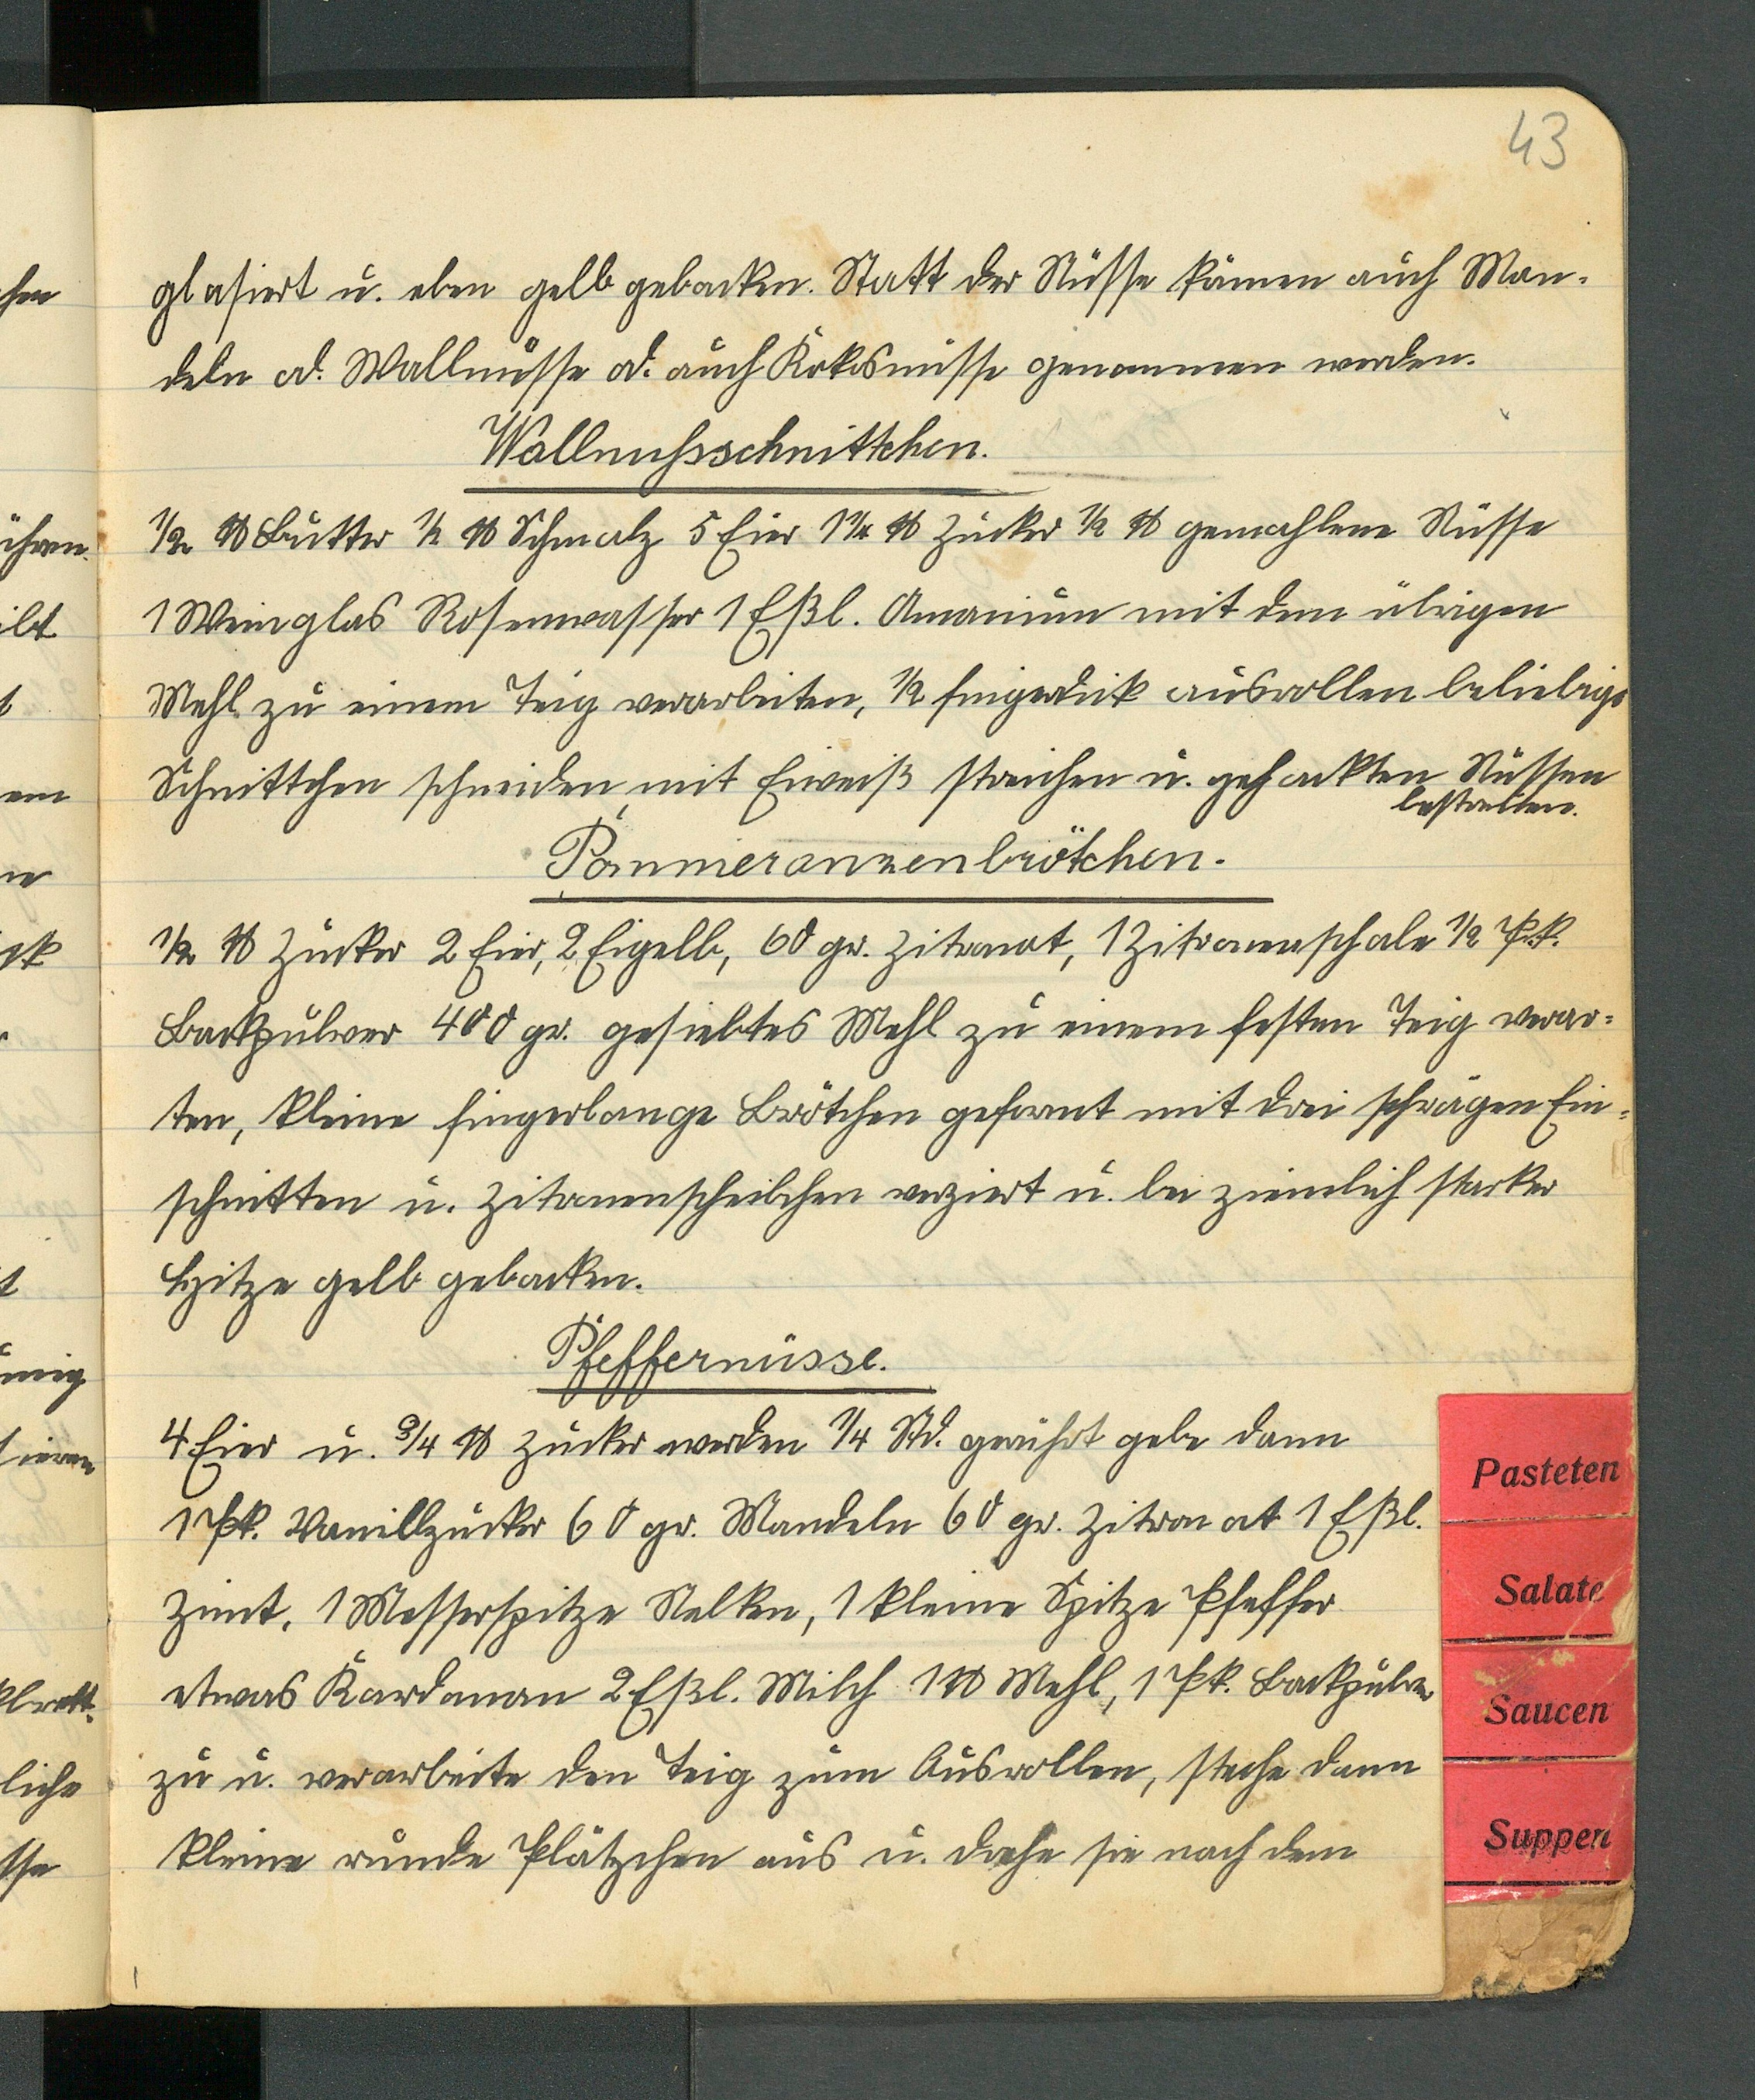 43
glasiert u. eben gelb gebacken. Statt der Nüsse können auch Man-
deln od. Wallnüsse od. auch Kokosnüsse genommen werden.
Wallnußsschnittchen.
1/2 ℔ Butter 1/2 ℔ Schmalz 5 Eier 1 1/4 ℔ Zucker 1/2 ℔ gemahlene Nüsse
1 Weinglas Rosenwasser 1 Eßl. Amonium mit dem übrigen
Mehl zu einem Teig verarbeiten, 1/2 fingerdick ausrollen beliebige
Schnittchen schneiden, mit Eiweiß streichen u. gehackten Nüssen
bestreuen.
Pommeranzenbrötchen.
1/2 ℔ Zucker 2 Eier, 2 Eigelb, 60 gr. Zitronat, 1 Zitronenschale 1/2 Pk.
Backpulver 400 gr. gesiebtes Mehl zu einem festen Teig verar-
ten, kleine fingerlange Brötchen geformt mit drei schrägen Ein-
schnitten u. Zitronenscheibchen verziert u. bei ziemlich starker
Hitze gelb gebacken.
Pfeffernüsse.
4 Eier u. 3/4 ℔ Zucker werden 1/4 Std. gerührt gebe dann
1 Pk. Vanillzucker 60 gr. Mandeln 60 gr. Zitronat 1 Eßl.
Zimt, 1 Messerspitze Nelken, 1 kleine Spitze Pfeffer
etwas Kardamon 2 Eßl. Milch 1 ℔ Mehl, 1 Pk. Backpulver
zu u. verarbeite den Teig zum Ausrollen, steche dann
kleine runde Plätzchen aus u. drehe sie nach dem
Pasteten
Salate
Saucen
Suppen